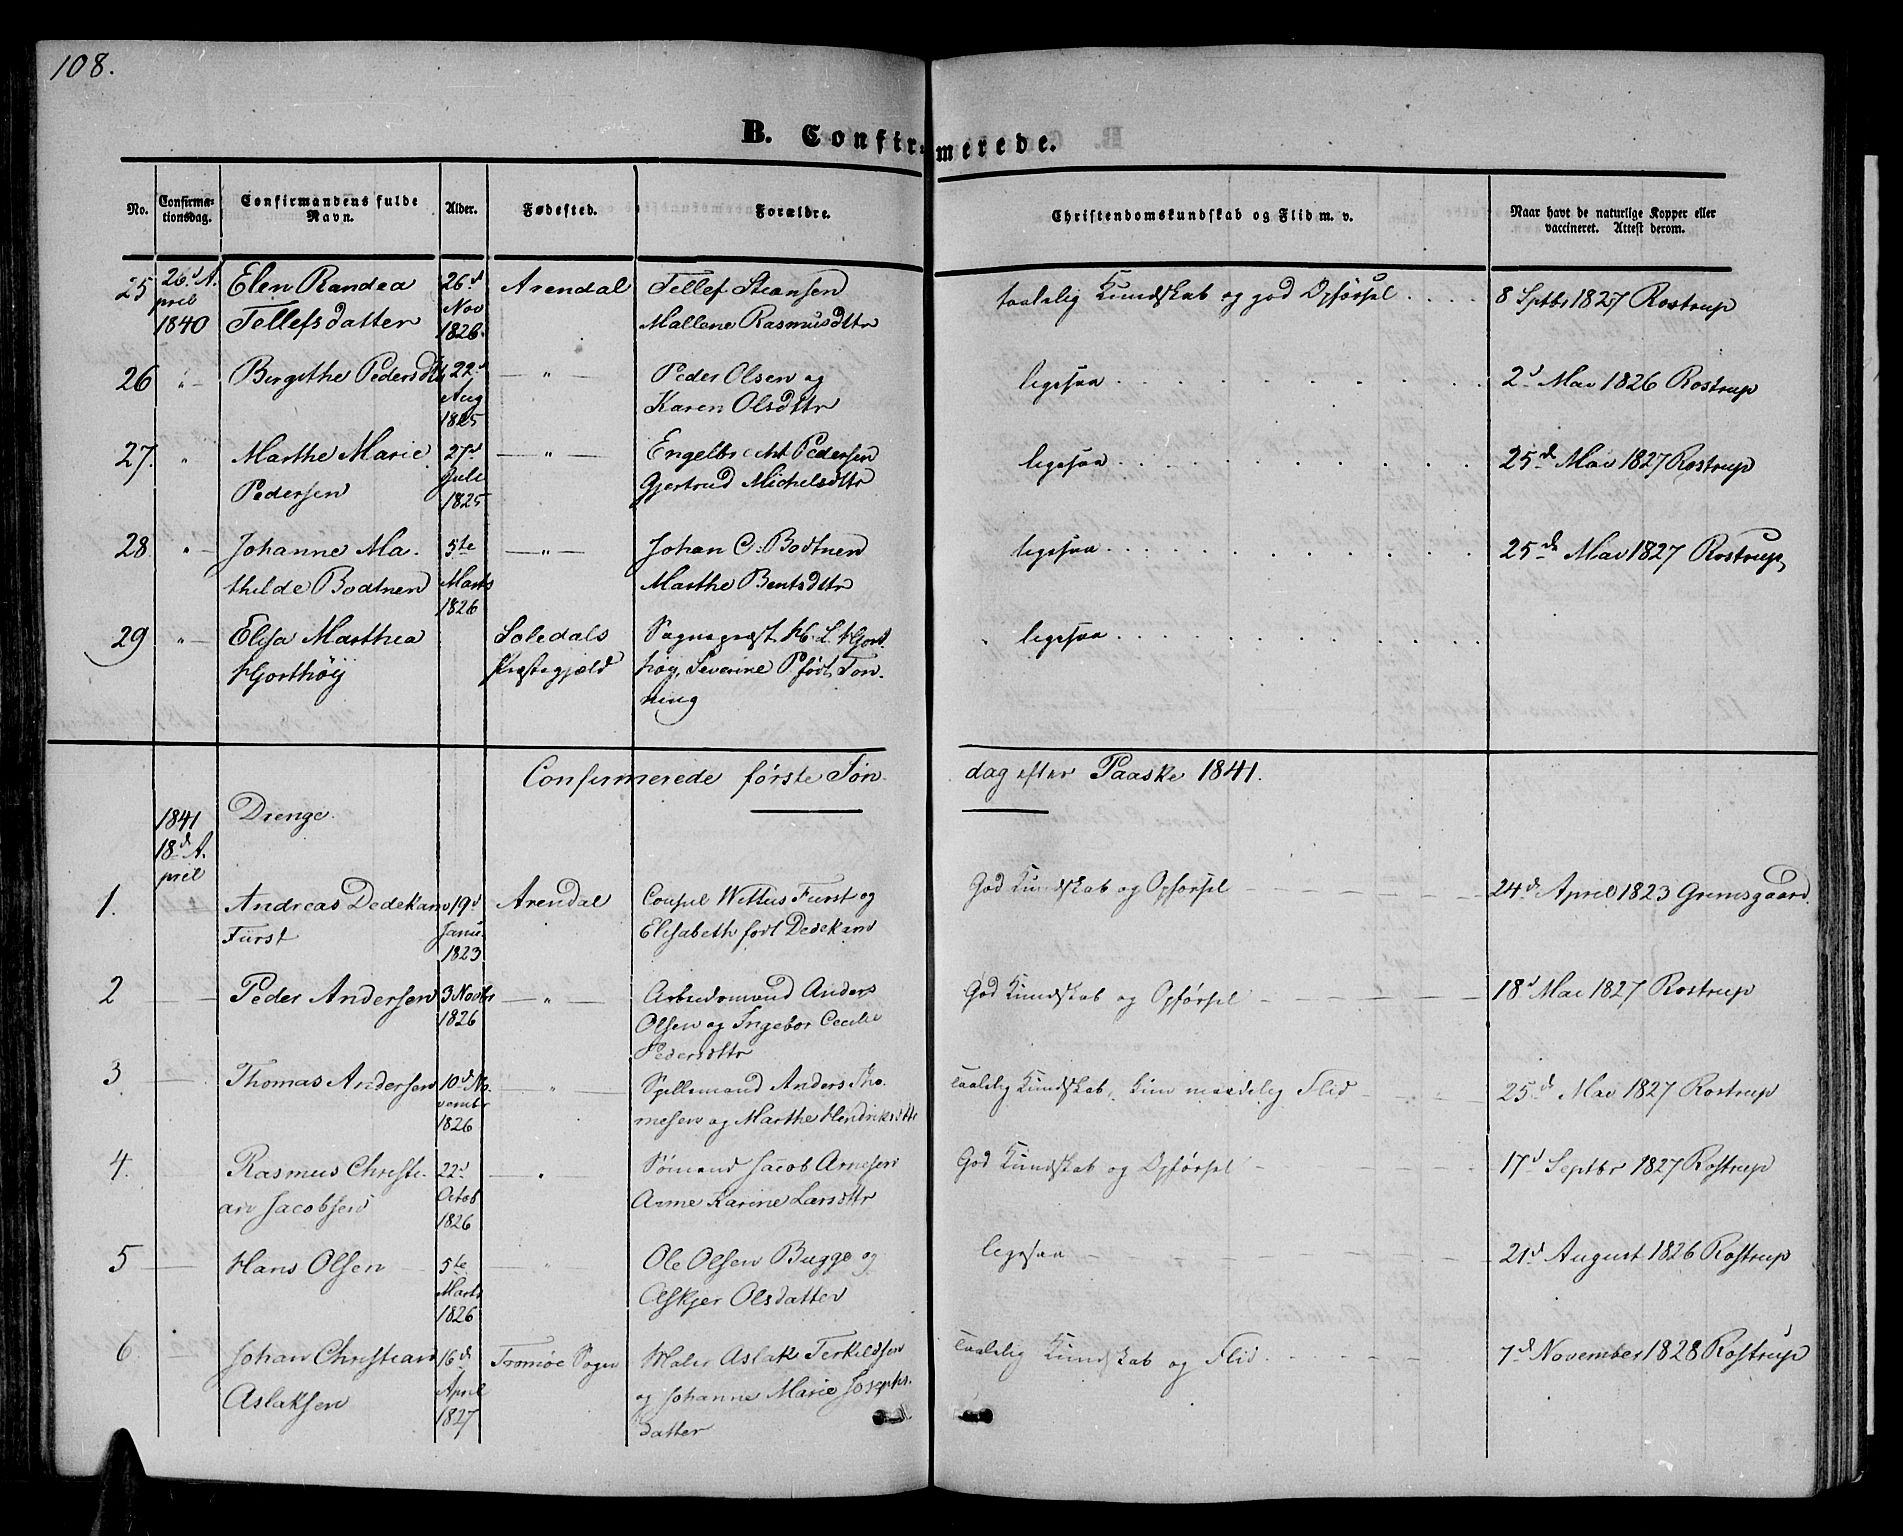 108.
B. Confirmerede.
No.
Confirma-
tionsdag.
Confirmandens fulde
Navn.
Alder.
Fødested.
Forældre.
Christendomskundskab og Flid m. v.
Naar havt de naturlige Kopper eller
vaccineret. Attest derom.
25 26d A. Elen Randea 26d Arendal Tellef Steansen taalelig Kundskab og god Opførsel . . . . 8 Septbr 1827 Rostrup
pril Nov
1840 Tellefsdatter 1826. Mallene Rasmusdttr
26 " Birgithe Pedersdtr 22d — " — Peder Olsen og ligesaa . . . . . . . . . 2d Mai 1826 Rostrup
Aug Karen Olsdttr
1825
27. " Marthe Marie 27d — " — Engelbrecht Pedersen ligesaa . . . . . . . . . 25de Mai 1827 Rostrup
Pedersen Juli Gjertrud Michelsdttr
1825
28 " Johanne Ma- 5te — " — Johan C. Bodtnen ligesaa . . . . . . . . . 25de Mai 1827 Rostrup
thilde Bodtnen Marts Marthe Bentsdttr
1826
29 " Elisa Marthea Soledals Sognepræst H. L. Hjort- ligesaa . . . . . . . . .
Hjorthøy Præstegjæld høy, Severine P født Ton-
ning
Confirmerede første Søn-dag efter Paaske 1841.
1841 Drenge.
18d A.
pril
1. Andreas Dedekam 19d Arendal Consul Wettus Fürst og God Kundskab og Opførsel — — — 24de April 1823 Grimsgaard.
Fürst Janu. Elisabeth født Dedekam
1823
2 — Peder Andersen 3 Novbr — " — Arbeidsmand Anders God Kundskab og Opførsel — — — 18d Mai 1827 Rostrup
1826 Olsen og Ingebor Cecilie
Pedersdttr
3 — Thomas Andersen 10d No- — " — Spillemand Anders Tho- Taalelig Kundskab, kun maadelig Flid — — 25d Mai 1827 Rostrup
vember mesen og Marthe Hendriksdttr
1826
4. — Rasmus Christi- 22d " Sømand Jacob Arnesen God Kundskab og Opførsel — — — 17d Septbr 1827 Rostrup
an Jacobsen Octob Anne Karine Larsdttr
1826
5 — Hans Olsen 5te " Ole Olsen Bugge og ligesaa — — — 21d August 1826 Rostrup
Marts Askjer Olsdatter
1826
6. Johan Christian 16d Tromøe Sogn Maler Aslak Terkildsen Taalelig Kundskab og Flid. — — — 7d November 1828 Rostrup
Aslaksen April og Johanne Marie Josephs-
1827 datter